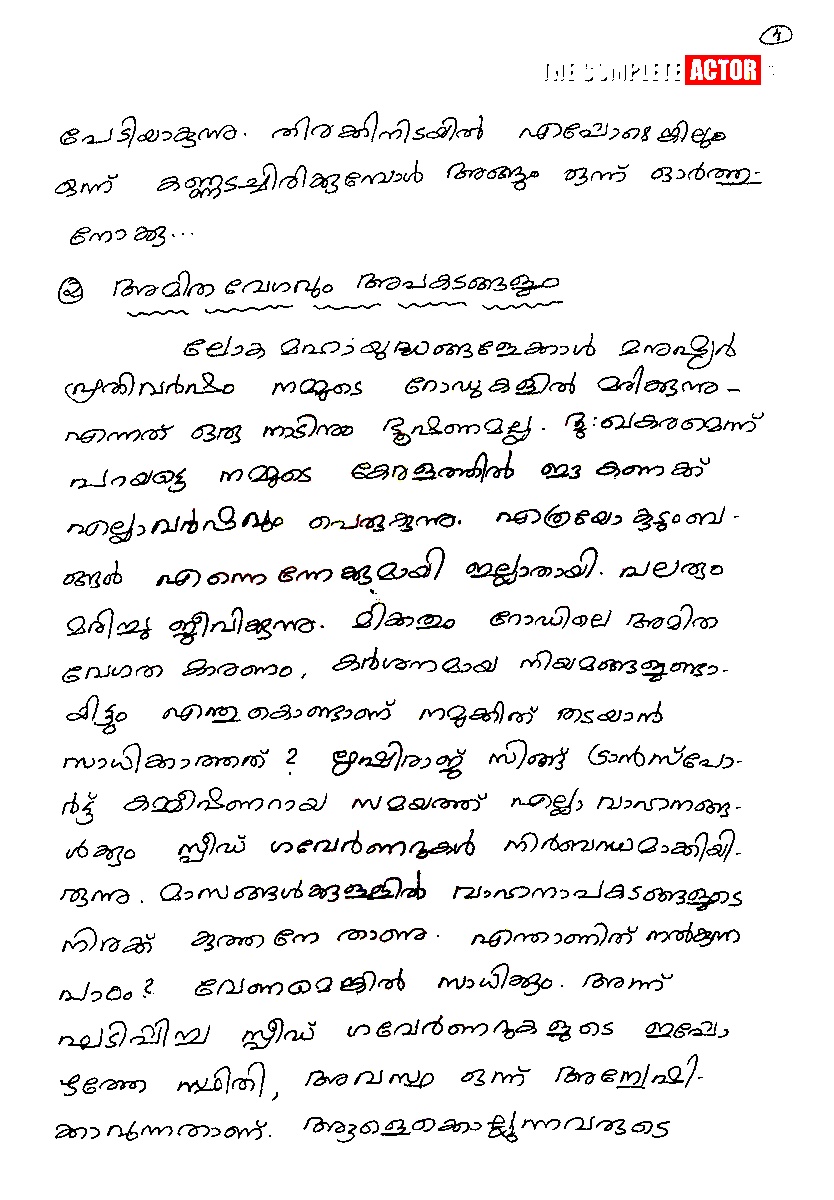 1
THE COMPLETE ACTOR
പേടിയാകുന്നു. തിരക്കിനിടയിൽ എപ്പോഴെങ്കിലും
ഒന്ന് കണ്ണടച്ചിരിക്കുമ്പോൾ അങ്ങും ഒന്ന് ഓർത്തു-
നോക്കൂ...
② അമിത വേഗവും അപകടങ്ങളും
ലോക മഹായുദ്ധങ്ങളേക്കാൾ മനുഷ്യർ
പ്രതിവർഷം നമ്മുടെ റോഡുകളിൽ മരിക്കുന്നു -
എന്നത് ഒരു നാടിനും ഭൂഷണമല്ല. ദു:ഖകരമെന്ന്
പറയട്ടെ നമ്മുടെ കേരളത്തിൽ ഈ കണക്ക്
എല്ലാവർഷവും പെരുകുന്നു. എത്രയോ കുടുംബ-
ങ്ങൾ എന്നെന്നേക്കുമായി ഇല്ലാതായി. പലരും
മരിച്ചു ജീവിക്കുന്നു. മിക്കതും റോഡിലെ അമിത
വേഗത കാരണം, കർശനമായ നിയമങ്ങളുണ്ടാ-
യിട്ടും എന്തുകൊണ്ടാണ് നമുക്കിത് തടയാൻ
സാധിക്കാത്തത്? ഋഷിരാജ് സിങ്ങ് ട്രാൻസ്പോ-
ർട്ട് കമ്മീഷണറായ സമയത്ത് എല്ലാ വാഹനങ്ങ-
ൾക്കും സ്പീഡ് ഗവേർണറുകൾ നിർബന്ധമാക്കിയി-
രുന്നു. മാസങ്ങൾക്കുള്ളിൽ വാഹനാപകടങ്ങളുടെ
നിരക്ക് കുത്തനേ താണു. എന്താണിത് നൽകുന്ന
പാഠം? വേണമെങ്കിൽ സാധിക്കും. അന്ന്
ഘടിപ്പിച്ച സ്പീഡ് ഗവേർണറുകളുടെ ഇപ്പോ
ഴത്തേ സ്ഥിതി, അവസ്ഥ ഒന്ന് അന്വേഷി-
ക്കാവുന്നതാണ്. ആളെക്കൊല്ലുന്നവരുടെ